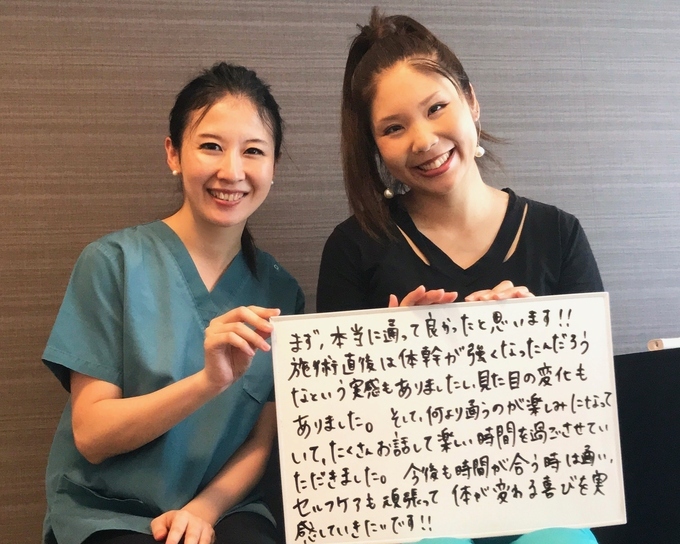 まず、本当に通って良かったと思います!!
施術直後は体幹が強くなったんだろう
なという実感もありましたし、見た目の変化も
ありました。そして、何より通うのが楽しみになって
いて、たくさんお話して楽しい時間を過ごさせてい
ただきました。今後も時間が合う時は通い、
セルフケアも頑張って体が変わる喜びを実
感していきたいです!!